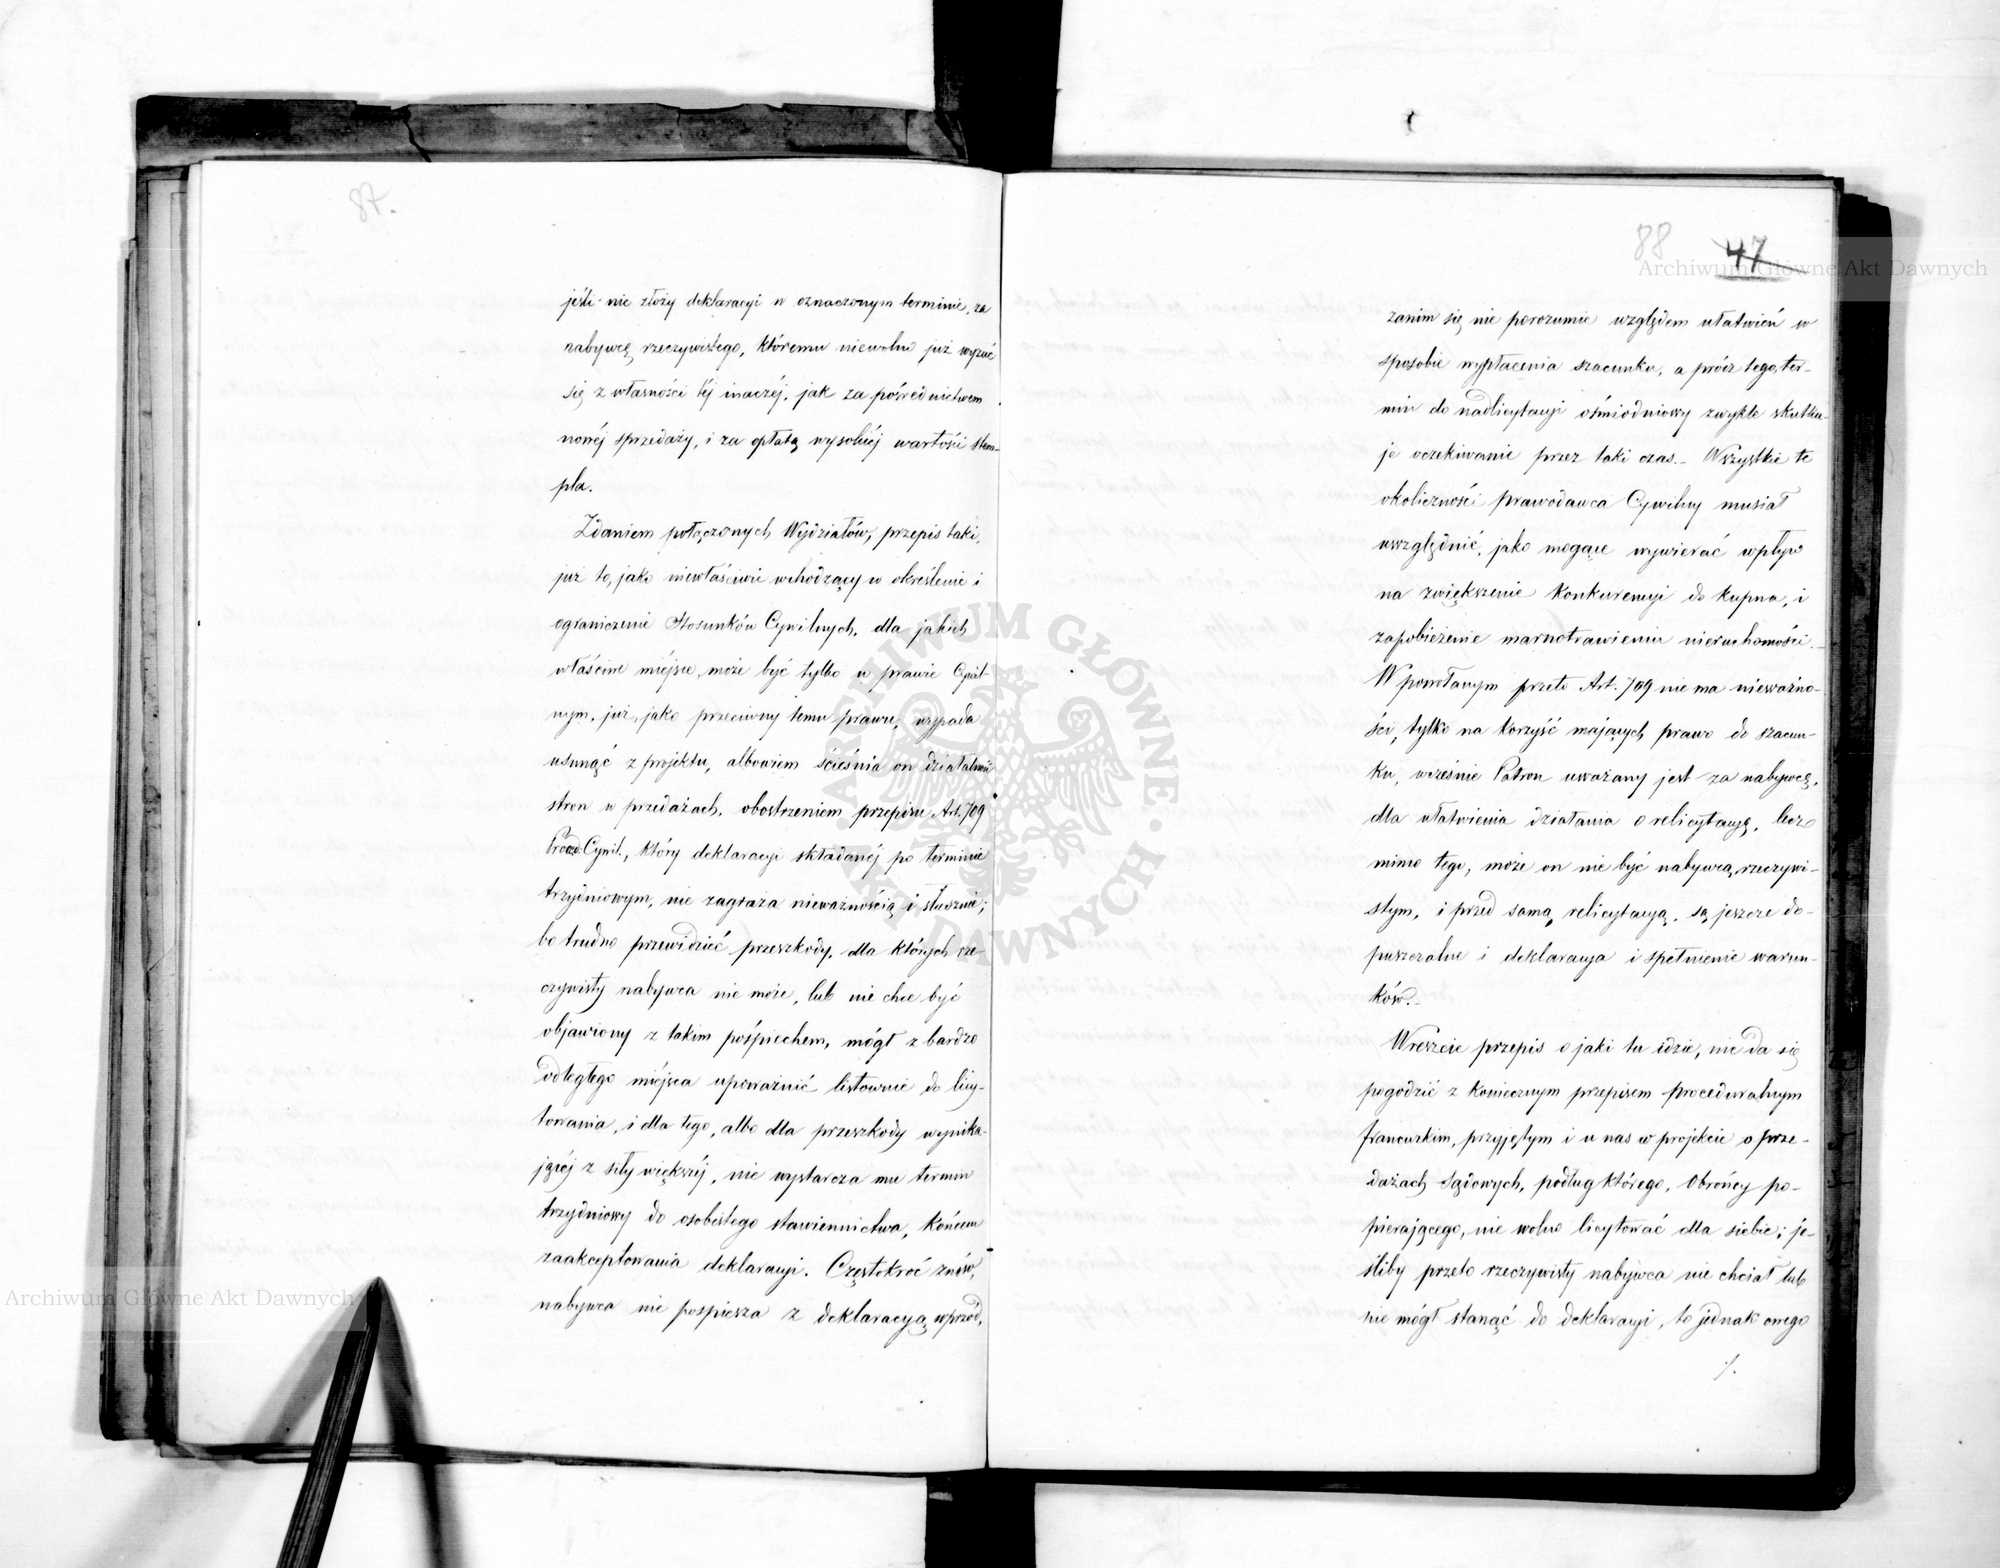 87.
jeśli nie złoży deklaracyi w oznaczonym terminie, za
nabywcę rzeczywistego, któremu niewolno już wyzuć
się z własności téj inaczéj, jak za pośrednictwem
nowéj sprzedaży, i za opłatą wysokiéj wartości stem-
pla.
Zdaniem połączonych Wydziałów, przepis taki,
już to, jako niewłaściwie wchodzący w określenie i
ograniczenie Stosunków Cywilnych, dla jakich
właściwe miéjsce, może być tylko w prawie Cywil-
nym, już, jako przeciwny temu prawu, wypada
usunąć z projektu, albowiem ścieśnia on działalność
stron w przedażach, obostrzeniem przepisu Art. 709
Proced. Cywil., który deklaracyi składanéj po terminie
trzydniowym, nie zagraża nieważnością i słusznie;
bo trudno przewidzieć przeszkody, dla których rze-
czywisty nabywca nie może, lub nie chce być
objawiony z takim pośpiechem, mógł z bardzo
odległego miéjsca upoważnić listownie do licy-
towania, i dla tego, albo dla przeszkody wynika-
jącéj z siły większéj, nie wystarcza mu termin
trzydniowy do osobistego stawiennictwa, końcem
zaakceptowania deklaracyi. Częstokroć znów,
nabywca nie pospiesza z deklaracyą wprzód,
88 47
zanim się nie porozumie względem ułatwień w
sposobie wypłacenia szacunku, a prócz tego, ter-
min do nadlicytacyi ośmiodniowy zwykle skutku-
je oczekiwanie przez taki czas.- Wszystkie te
okoliczności prawodawca Cywilny musiał
uwzględnić, jako mogące wywierać wpływ
na zwiększenie Konkurencyi do kupna, i
zapobieżenie marnotrawieniu nieruchomości.-
W powołanym przeto Art. 709 nie ma nieważno-
ści, tylko na korzyść mających prawo do szacun-
ku, wcześnie Patron uważany jest za nabywcę,
dla ułatwienia działania o relicytacyę, lecz
mimo tego, może on nie być nabywcą rzeczywi-
stym, i przed samą relicytacyą, są jeszcze do-
puszczalne i deklaracya i spełnienie warun-
ków.-
Wreszcie przepis o jaki tu idzie, nie da się
pogodzić z koniecznym przepisem proceduralnym
francuzkim, przyjętym i u nas w projekcie o prze-
dażach Sądowych, podług którego, Obrońcy po-
pierającego, nie wolno licytować dla siebie; je-
śliby przeto rzeczywisty nabywca nie chciał lub
nie mógł stanąć do deklaracyi, to jednak onego
./.
Archiwum Główne Akt Dawnych
Archiwum Główne Akt Dawnych
ARCHIWUM GŁÓWNE AKT DAWNYCH